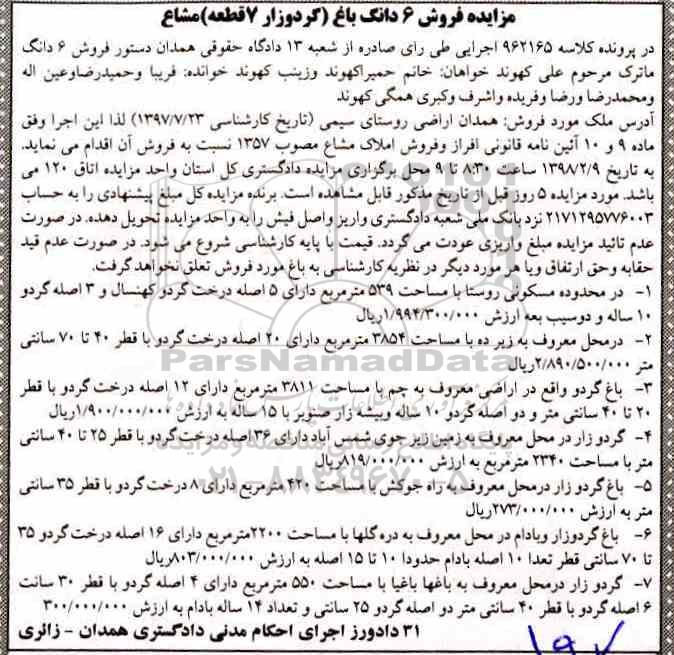 مزایده فروش ۶ دانگ باغ (گردوزار ۷قطعه)مشاع
در پرونده کلاسه ۹۶۲۱۶۵ اجرایی طی رای صادره از شعبه ۱۳ دادگاه حقوقی همدان دستور فروش ۶ دانگ
ماترک مرحوم علی کهوند خواهان: خانم حمیراکهوند وزینب کهوند خوانده: فریبا وحمیدرضاوعین اله
ومحمدرضا ورضا وفریده واشرف وکبری همگی کهوند
آدرس ملک مورد فروش: همدان اراضی روستای سیمی (تاریخ کارشناسی ۱۳۹۷/۷/۲۳) لذا این اجرا وفق
ماده ۹ و ۱۰ آئین نامه قانونی افراز وفروش املاک مشاع مصوب ۱۳۵۷ نسبت به فروش آن اقدام می نماید.
به تاریخ ۱۳۹۸/۲/۹ ساعت ۸:۳۰ تا ۹ محل برگزاری مزایده دادگستری کل استان واحد مزایده اتاق ۱۲۰ می
باشد. مورد مزایده ۵ روز قبل از تاریخ مذکور قابل مشاهده است. برنده مزایده کل مبلغ پیشنهادی را به حساب
۲۱۷۱۲۹۵۷۷۶۰۰۳ نزد بانک ملی شعبه دادگستری واریز واصل فیش را به واحد مزایده تحویل دهده. در صورت
عدم تائید مزایده مبلغ واریزی عودت می گردد. قیمت با پایه کارشناسی شروع می شود. در صورت عدم قید
حقابه وحق ارتفاق ویا هر مورد دیگر در نظریه کارشناسی به باغ مورد فروش تعلق نخواهد گرفت.
۱- در محدوده مسکونی روستا با مساحت ۵۳۹ مترمربع دارای ۵ اصله درخت گردو کهنسال و ۳ اصله گردو
۱۰ ساله و دوسیب بعه ارزش ۱/۹۹۴/۳۰۰/۰۰۰ریال
۲- درمحل معروف به زیر ده با مساحت ۳۸۵۴ مترمربع دارای ۲۰ اصله درخت گردو با قطر ۴۰ تا ۷۰ سانتی
متر ۲/۸۹۰/۵۰۰/۰۰۰ریال
۳- باغ گردو واقع در اراضی معروف به چم با مساحت ۳۸۱۱ مترمربع دارای ۱۲ اصله درخت گردو با قطر
۲۰ تا ۴۰ سانتی متر و دو اصله گردو ۱۰ ساله وبیشه زار صنوبر با ۱۵ ساله به ارزش ۱/۹۰۰/۰۰۰/۰۰۰ریال
۴- گردو زار در محل معروف به زمین زیر جوی شمس آباد دارای ۳۶ اصله درخت گردو با قطر ۲۵ تا ۴۰ سانتی
متر با مساحت ۲۳۴۰ مترمربع به ارزش ۸۱۹/۰۰۰/۰۰۰ریال
۵- باغ گردو زار درمحل معروف به راه جوکش با مساحت ۴۲۰ مترمربع دارای ۸ درخت گردو با قطر ۳۵ سانتی
متر به ارزش ۲۷۳/۰۰۰/۰۰۰ریال
۶- باغ گردوزار وبادام در محل معروف به دره گلها با مساحت ۲۲۰۰مترمربع دارای ۱۶ اصله درخت گردو ۳۵
تا ۷۰ سانتی قطر تعدا ۱۰ اصله بادام حدودا ۱۰ تا ۱۵ اصله به ارزش ۸۰۳/۰۰۰/۰۰۰ریال
۷- گردو زار درمحل معروف به باغها باغیا با مساحت ۵۵۰ مترمربع دارای ۴ اصله گردو با قطر ۳۰ سانت
۶ اصله گردو با قطر ۴۰ سانتی متر دو اصله گردو ۲۵ سانتی و تعداد ۱۴ ساله بادام به ارزش ۳۰۰/۰۰۰/۰۰۰
۳۱ دادورز اجرای احکام مدنی دادگستری همدان - زائری
ParsNamadData
۰۲۱-۸۸۳۴۹۶۷۰-۵